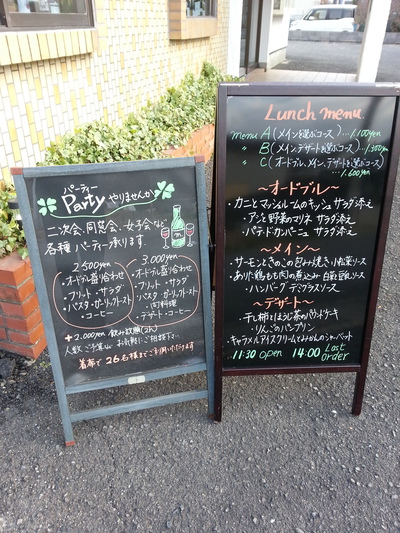 パーティー
Party やりませんか
二次会、同窓会、女子会など
各種パーティー承ります。
2500yen
・オードブル盛り合わせ
・フリット ・サラダ
・パスタ ・ガーリックトースト
・コーヒー
3,000yen
・オードブル盛り合わせ
・フリット ・サラダ
・パスタ ・ガーリックトースト
・肉料理
・デザート ・コーヒー
+2,000yen 飲み放題(2h)
人数、ご予算etc お気軽にご相談下さい
着席で26名様までご利用いただけます
Lunch menu
menu A(メインを選ぶコース)...1,100yen
〃 B(メイン、デザートを選ぶコース)...1,300yen
〃 C(オードブル、メイン、デザートを選ぶコース)
...1,600yen
〜オードブル〜
・カニとマッシュルームのキッシュ サラダ添え
・アジと野菜のマリネ サラダ添え
・パテドカンパーニュ サラダ添え
〜メイン〜
・サーモンときのこの包み焼き 小松菜ソース
・ありた鶏もも肉の煮込み 白菜豆乳ソース
・ハンバーグ デミグラスソース
〜デザート〜
・干し柿とほうじ茶のパウンドケーキ
・りんごのパンプリン
・キャラメルアイスクリームとみかんのシャーベット
11:30 open 14:00 Last order